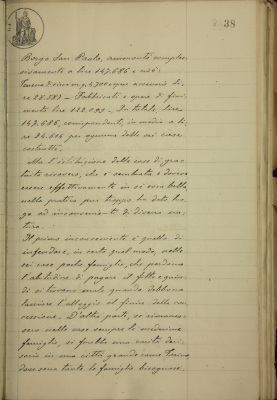 38
Borgo San Paolo, ammontò comples-
sivamente a lire 147.686 e cioè:
Terreno di circa mq. 4700 que ascenso di
re 25.593 - Fabbricati e opere di fini-
mento lire 122.093 - In totale, lire
147.686, corrispondenti in media a li-
re 24.614 per ognuna delle sei case
costrutte.
Ma l'istituzione delle case di gra-
tuito ricovero, che è sembrata e doveva
essere effettivamente in sè cosa bella,
nella pratica pur troppo ha dato luo-
go ad inconvenienti di diversa na-
tura.
Il primo inconveniente è quello di
infeudare, in certo qual modo, nelle
sei case poche famiglie, che perdono
l'abitudine di pagare il fitto e quin-
di si trovano male quando debbono
lasciare l'alloggio al finire della con-
cessione. D'altra parte, se rimanes-
sero nelle case sempre le medesime
famiglie, si farebbe una carità der-
isoria in una città grande come Torino
dove sono tante le famiglie bisognose.